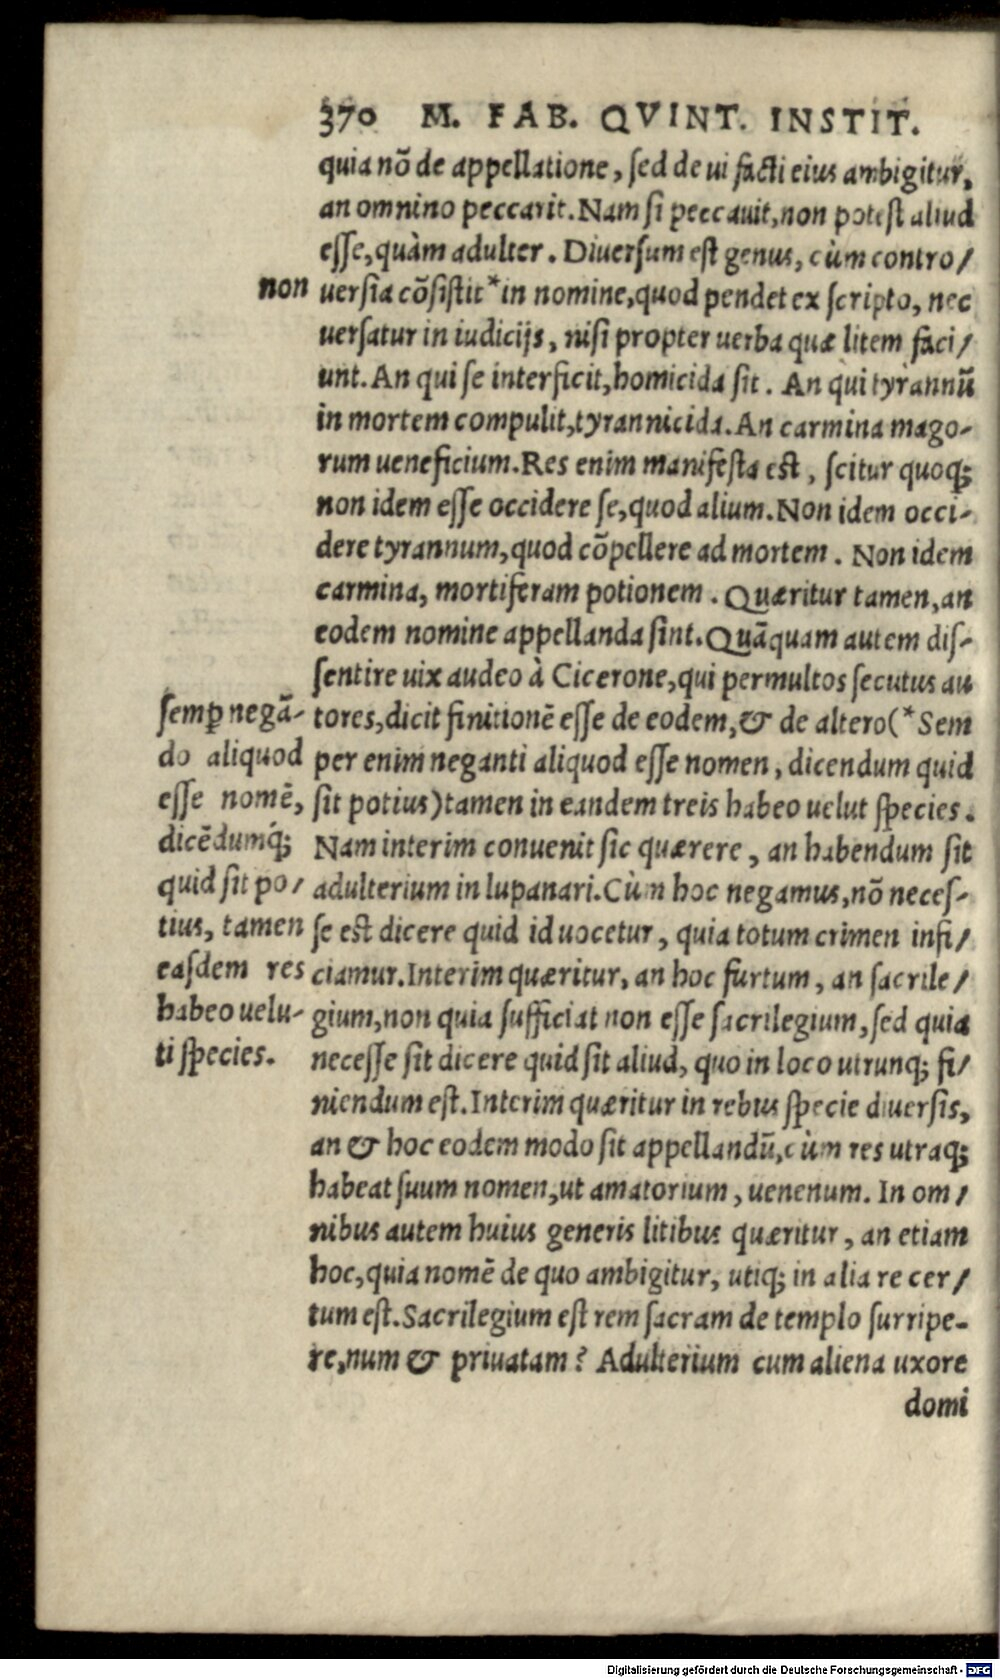 370 M. FAB. QVINT. INSTIT.
quia nō de appellatione, sed de ui facti eius ambigitur,
an omnino peccarit. Nam si peccauit, non potest aliud
esse, quàm adulter. Diuersum est genus, cùm contro/
non
uersia cōsistit * in nomine, quod pendet ex scripto, nec
uersatur in iudicijs, nisi propter uerba quæ litem faci/
unt. An qui se interficit, homicida sit. An qui tyrannū
in mortem compulit, tyrannicida. An carmina mago-
rum ueneficium. Res enim manifesta est, scitur quoq;
non idem esse occidere se, quod alium. Non idem occi-
dere tyrannum, quod cōpellere ad mortem. Non idem
carmina, mortiferam potionem. Quæritur tamen, an
eodem nomine appellanda sint. Quāquam autem dis-
sentire uix audeo à Cicerone, qui permultos secutus au
tores, dicit finitionē esse de eodem, & de altero (*Sem
per enim neganti aliquod esse nomen, dicendum quid
sit potius) tamen in eandem treis habeo uelut species.
Nam interim conuenit sic quærere, an habendum sit
adulterium in lupanari. Cùm hoc negamus, nō neces-
se est dicere quid id uocetur, quia totum crimen infi/
ciamur. Interim quæritur, an hoc furtum, an sacrile/
gium, non quia sufficiat non esse sacrilegium, sed quia
necesse sit dicere quid sit aliud, quo in loco utrunq; fi/
niendum est. Interim quæritur in rebus specie diuersis,
an & hoc eodem modo sit appellandū, cùm res utraq;
habeat suum nomen, ut amatorium, uenenum. In om/
nibus autem huius generis litibus quæritur, an etiam
hoc, quia nomē de quo ambigitur, utiq; in alia re cer/
tum est. Sacrilegium est rem sacram de templo surripe-
re, num & priuatam? Adulterium cum aliena uxore
domi
semꝑ negā-
do aliquod
esse nomē,
dicēdumq́;
quid sit po/
tius, tamen
easdem res
habeo uelu-
ti species.
Digitalisierung gefördert durch die Deutsche Forschungsgemeinschaft - DFG